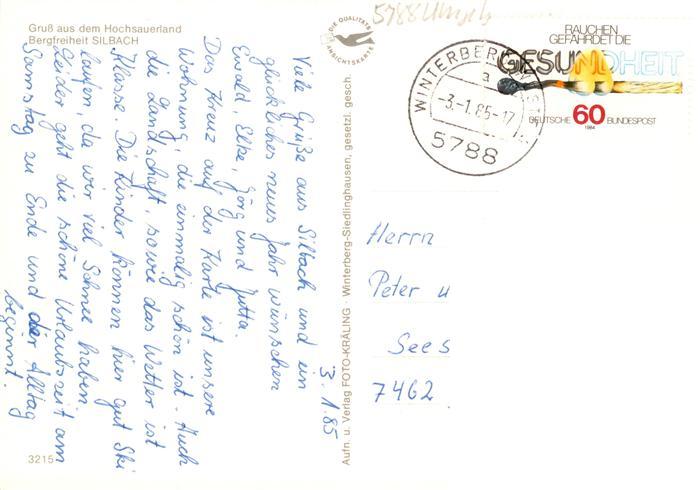 Gruß aus dem Hochsauerland
Bergfreiheit SILBACH
3.1.85
Viele Grüße aus Silbach und ein
glückliches neues Jahr wünschen
Ewald, Elke, Jörg und Jutta.
Das Kreuz auf der Karte ist unsere
Wohnung, die einmalig schön ist. Auch
die Landschaft, sowie das Wetter ist
Klasse. Die Kinder können hier gut Ski
laufen, da wir viel Schnee haben.
Leider geht die schöne Urlaubszeit am
Samstag zu Ende und der Alltag
beginnt.
3215
DIE QUALITÄTS
ANSICHTSKARTE
Aufn. u. Verlag FOTO-KRÄLING · Winterberg-Siedlinghausen, gesetzl. gesch.
5788
WINTERBERG
a
-3.-1.85-17
5788
RAUCHEN
GEFÄHRDET DIE
GESUNDHEIT
DEUTSCHE 60 BUNDESPOST
1984
Herrn
Peter u
Sees
7462